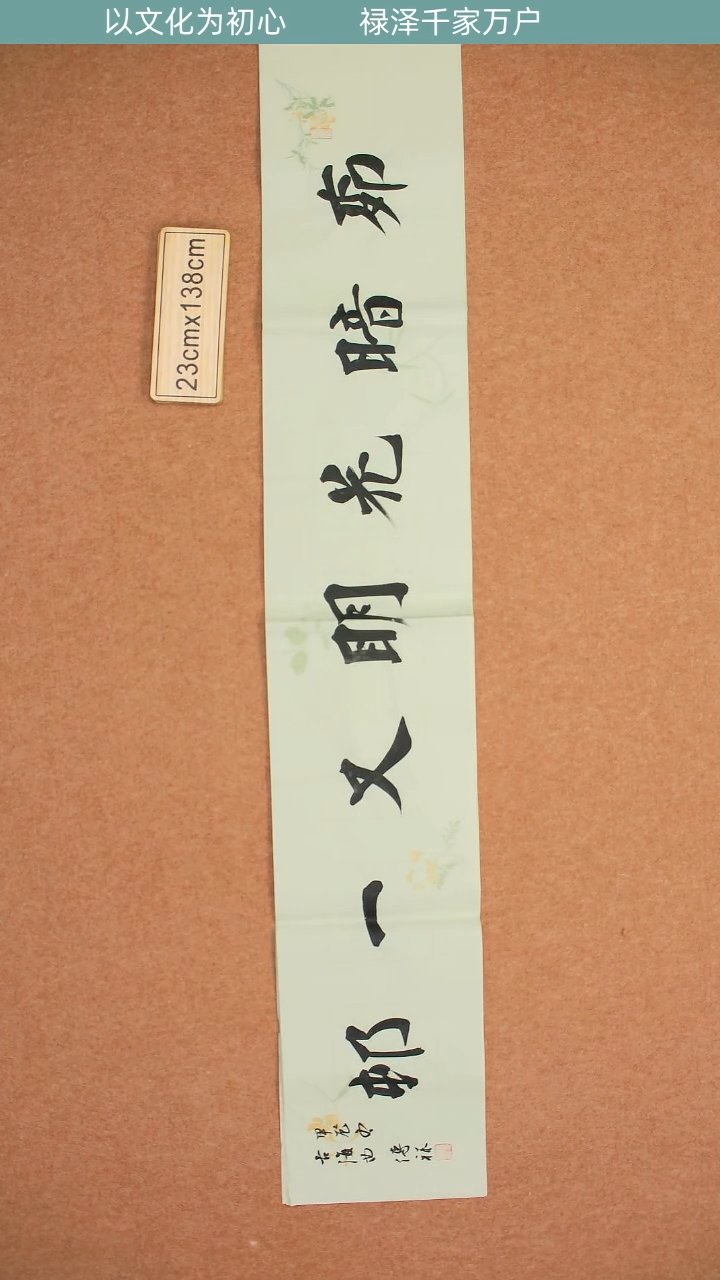 以文化为初心 禄泽千家万户
23cmx138cm
柳暗花明又一邨